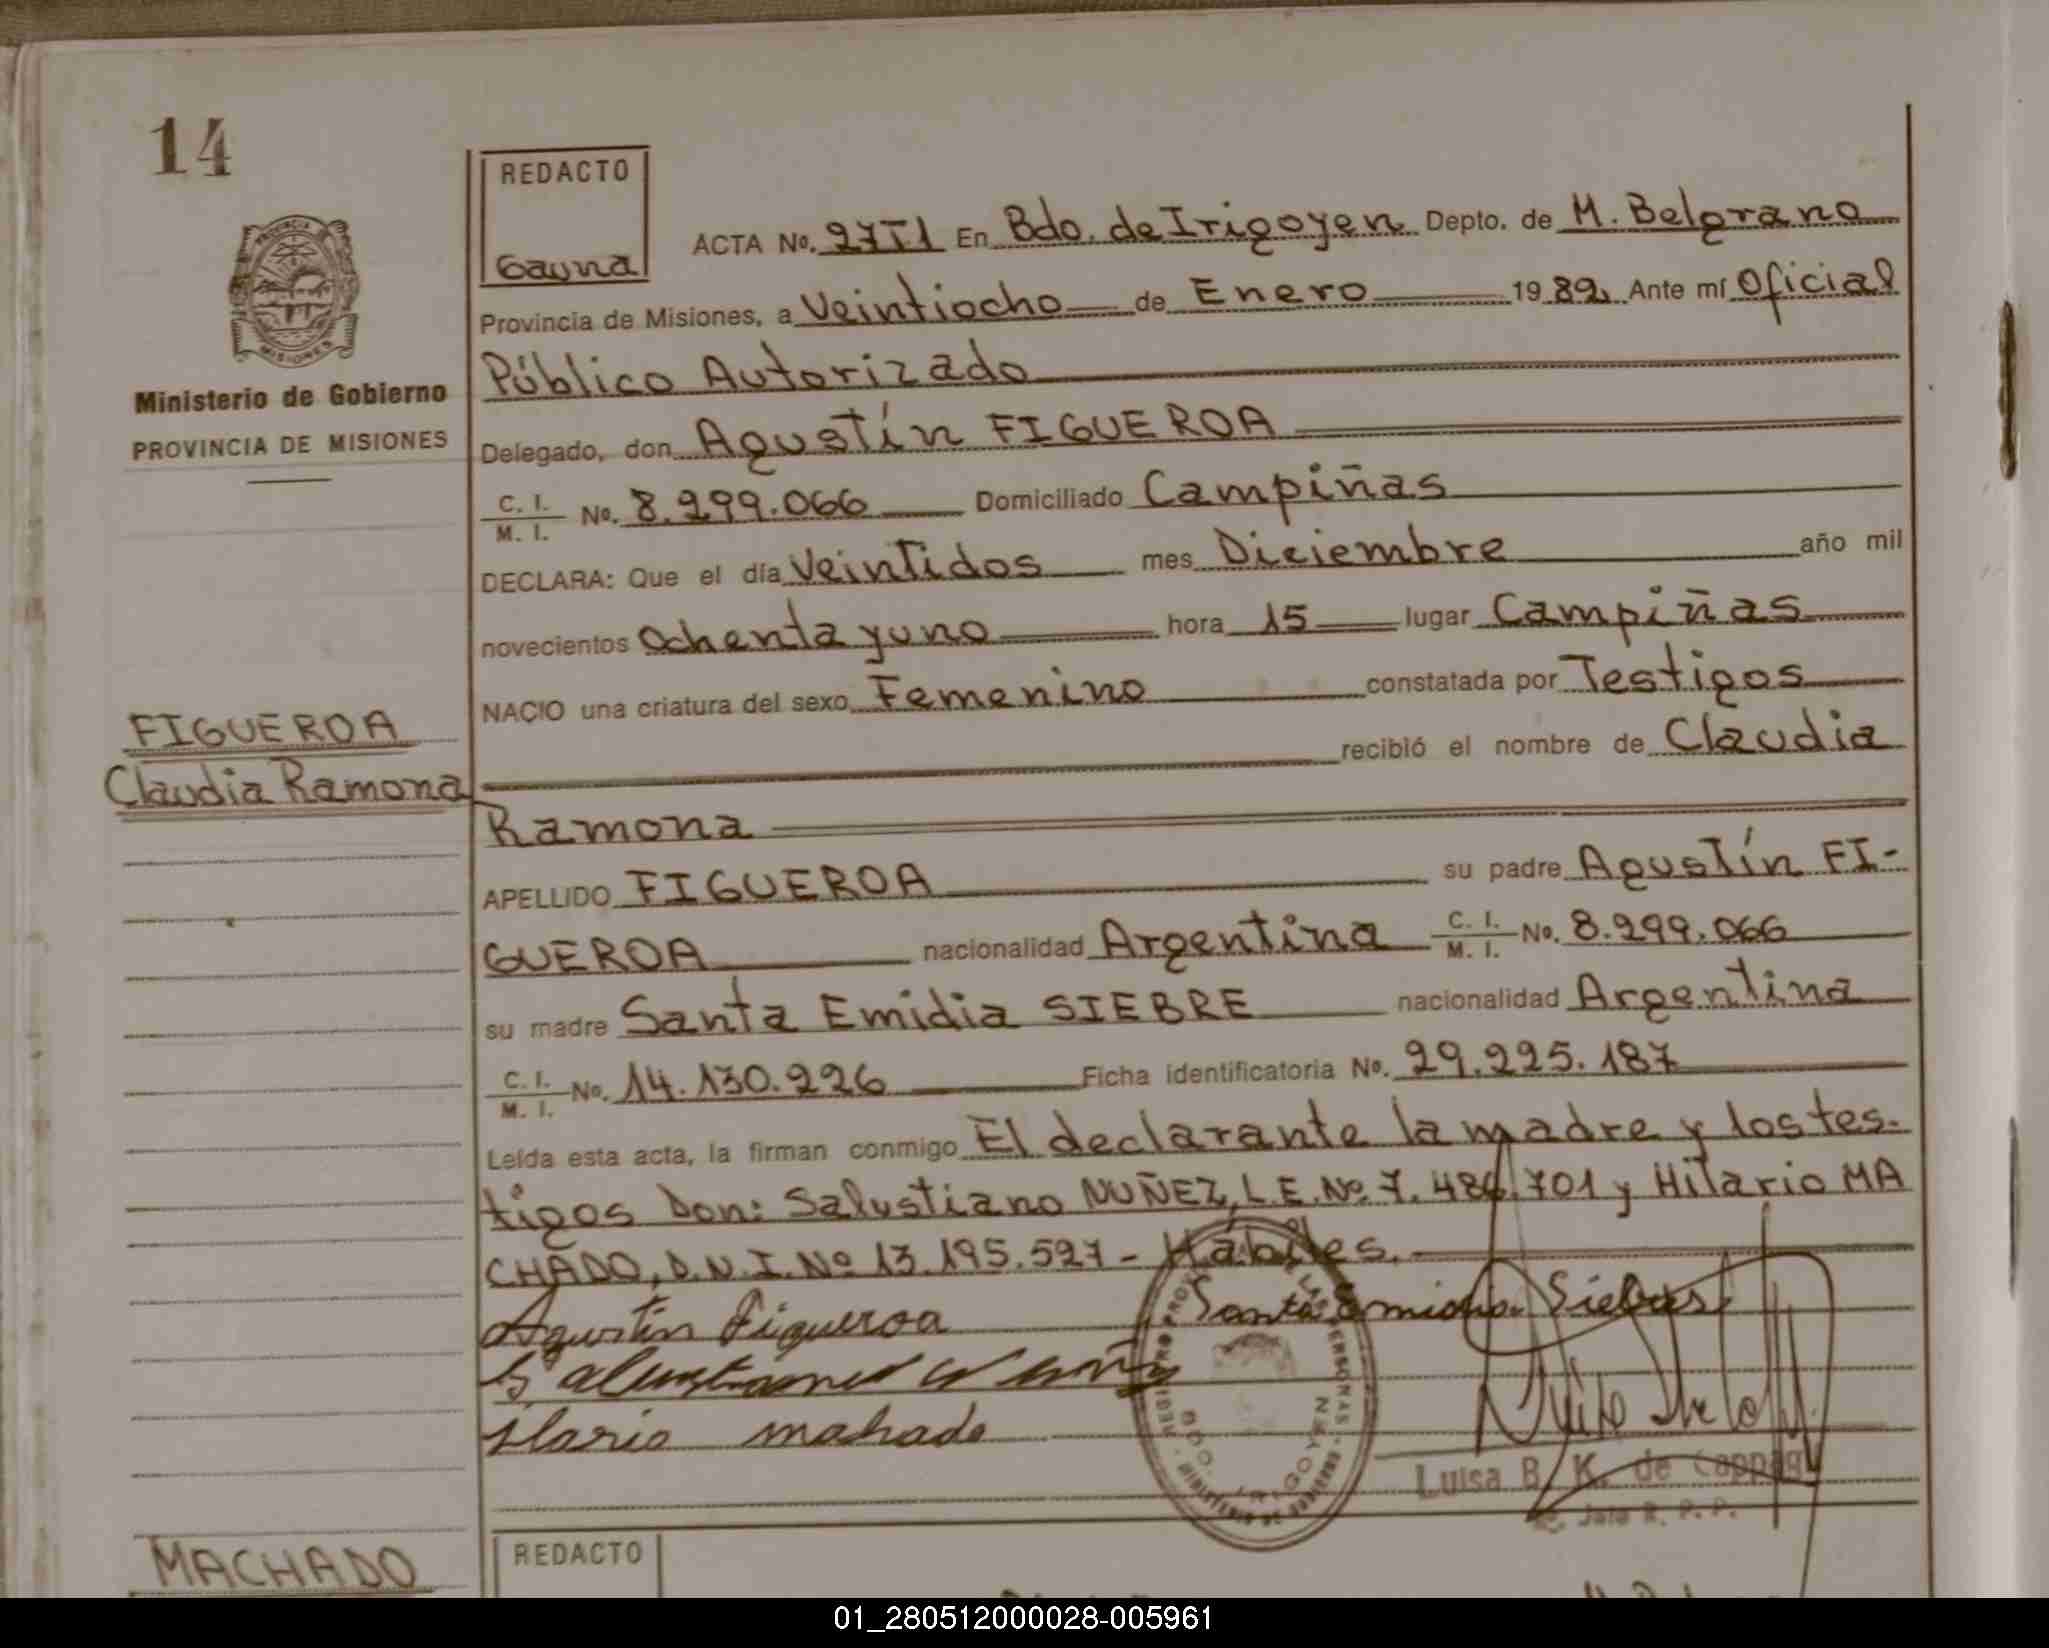 14
REDACTO
Gauna
ACTA No. 27TI En Bdo. de Irigoyen Depto. de M. Belgrano
Provincia de Misiones, a Veintiocho de Enero 1982, Ante mí Oficial
Público Autorizado
Delegado, don Agustín FIGUEROA
C. I. M. I. No. 8.299.066 Domiciliado Campiñas
DECLARA: Que el día Veintidos mes Diciembre año mil
novecientos Ochenta y uno hora 15 lugar Campiñas
NACIO una criatura del sexo Femenino constatada por Testigos
recibió el nombre de Claudia
Ramona
APELLIDO FIGUEROA su padre Agustín FI-
GUEROA nacionalidad Argentina C. I. M. I. No. 8.299.066
su madre Santa Emidia SIEBRE nacionalidad Argentina
C. I. M. I. No. 14.130.226 Ficha identificatoria No. 29.225.187
Leída esta acta, la firman conmigo El declarante la madre y los tes-
tigos Don: Salustiano NUÑEZ, L.E. Nº 7.486.701 y Hilario MA
CHADO, D.N.I. Nº 13.195.527 - Hábiles.
Agustin Figueroa Santa Emidia
ilario mahado
Luisa B. K. de
BDO. IRIGOYEN
PROVINCIA
MISIONES
Ministerio de Gobierno
PROVINCIA DE MISIONES
FIGUEROA
Claudia Ramona
MACHADO
REDACTO
01_280512000028-005961